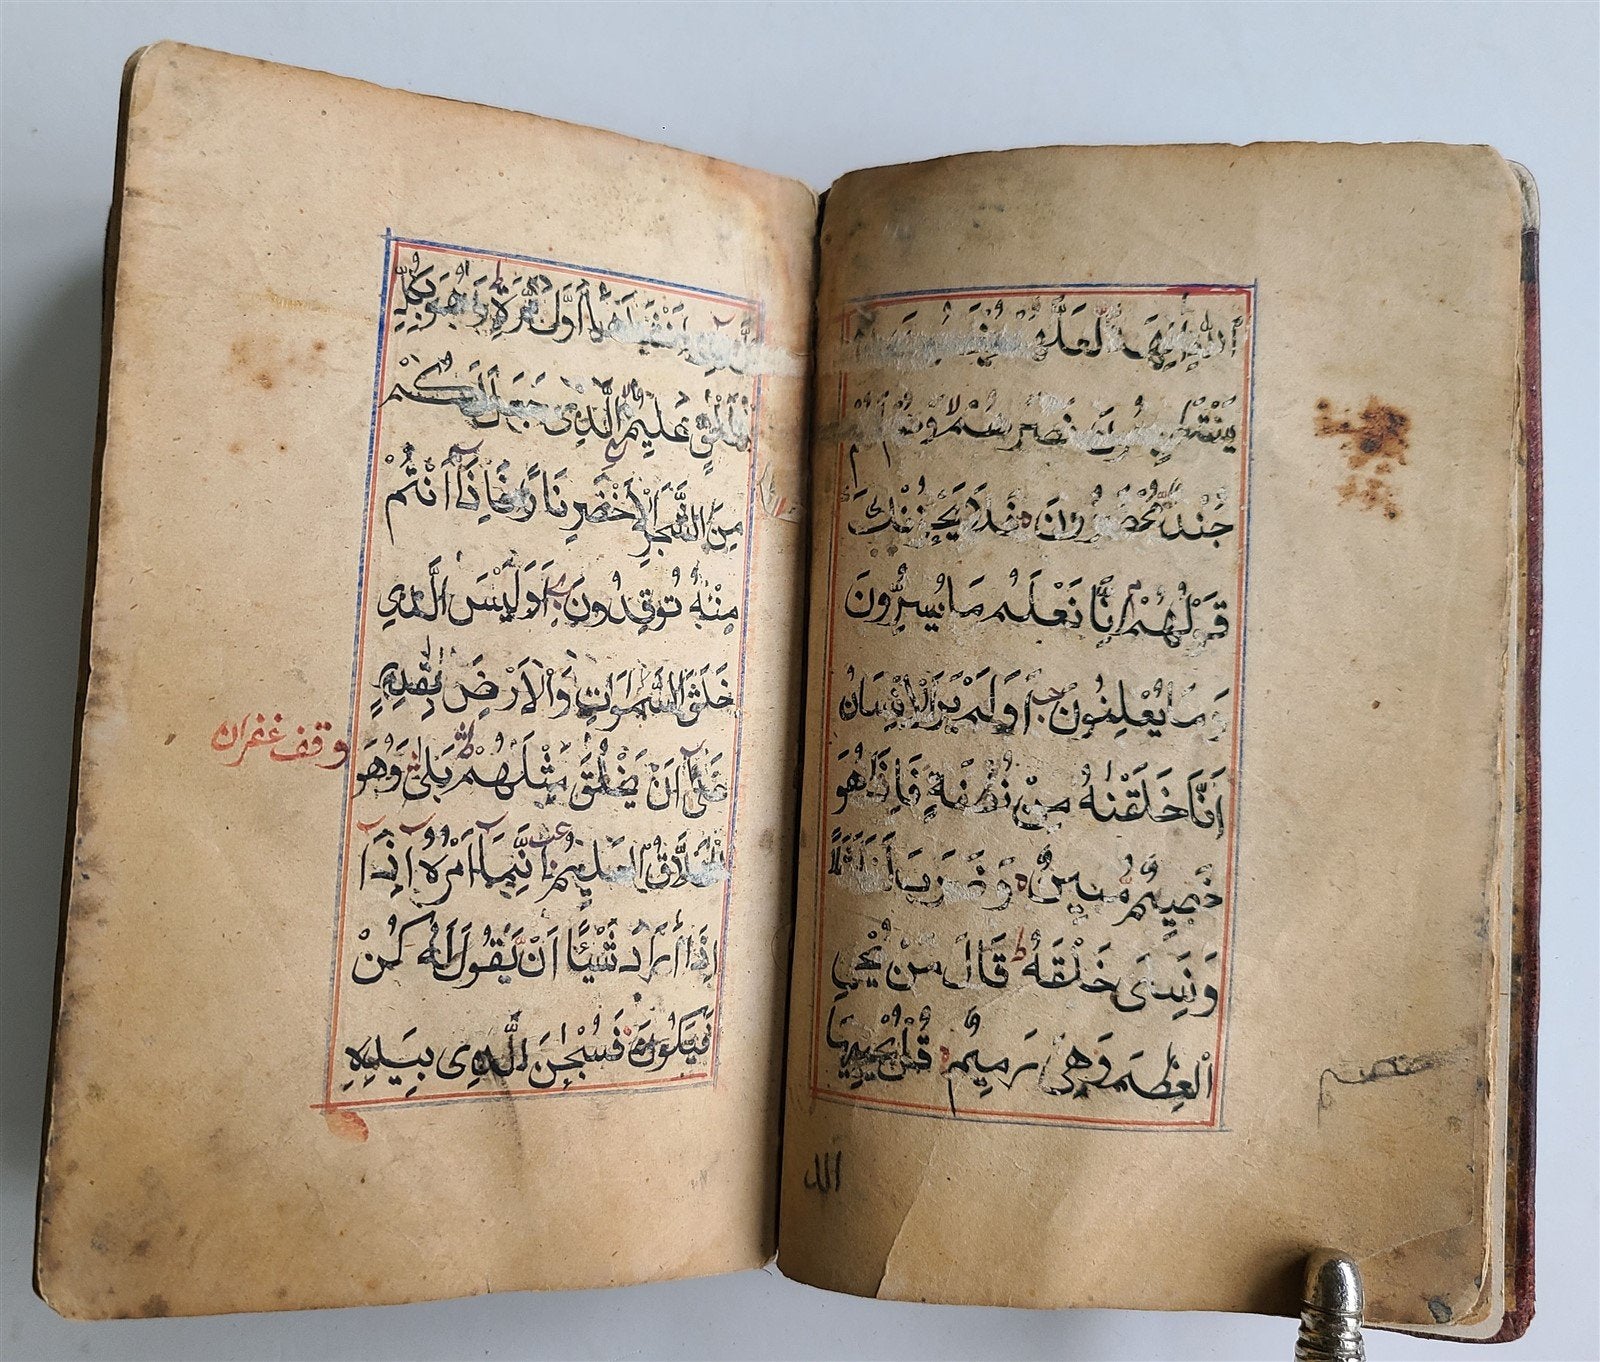 اللّٰهِ اٰلِهَةً لَّعَلَّهُمْ
نَصْرَهُمْ لا وَهُمْ لَهُمْ
جُنْدٌ مُّحْضَرُوْنَ فَلَا يَحْزُنْكَ
قَوْلُهُمْ اِنَّا نَعْلَمُ مَا يُسِرُّوْنَ
وَمَا يُعْلِنُوْنَ اَوَلَمْ يَرَ الْاِنْسَانُ
اَنَّا خَلَقْنٰهُ مِنْ نُّطْفَةٍ فَاِذَا هُوَ
خَصِيْمٌ مُّبِيْنٌ وَضَرَبَ لَنَا مَثَلًا
وَنَسِىَ خَلْقَهٗ ط قَالَ مَنْ يُّحْيِ
الْعِظَامَ وَهِىَ رَمِيْمٌ قُلْ يُحْيِيْهَا
الذ
الَّذِىْ اَنْشَاَهَا اَوَّلَ مَرَّةٍ ط وَهُوَ بِكُلِّ
خَلْقٍ عَلِيْمٌ الَّذِىْ جَعَلَ لَكُمْ
مِنَ الشَّجَرِ الْاَخْضَرِ نَارًا فَاِذَا اَنْتُمْ
مِنْهُ تُوْقِدُوْنَ اَوَلَيْسَ الَّذِي
خَلَقَ السَّمٰوَاتِ وَالْاَرْضَ بِقٰدِرٍ
عَلٰى اَنْ يَّخْلُقَ مِثْلَهُمْ ط بَلٰى وَهُوَ
وقف غفران
الْخَلَّاقُ الْعَلِيْمُ اِنَّمَا اَمْرُهٗ اِذَا
اِذَا اَرَادَ شَيْئًا اَنْ يَّقُوْلَ لَهٗ كُنْ
فَيَكُوْنُ فَسُبْحٰنَ الَّذِى بِيَدِهٖ